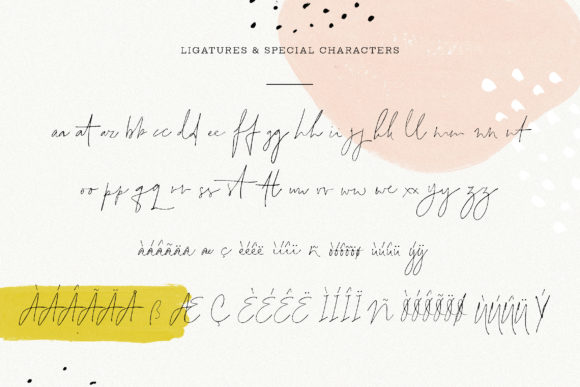 LIGATURES & SPECIAL CHARACTERS
aa at az bb cc dd ee ff gg hh ii jj kk ll mm nn nt
oo pp qq rr ss st tt uu vv ww we xx yy zz
àáâãäå æ ç èéêë ìíîï ñ òóôõöø ùúûü ýÿ
ÀÁÂÃÄÅ ß Æ Ç ÈÉÊË ÌÍÎÏ Ñ ÒÓÔÕÖØ ÙÚÛÜ Ý